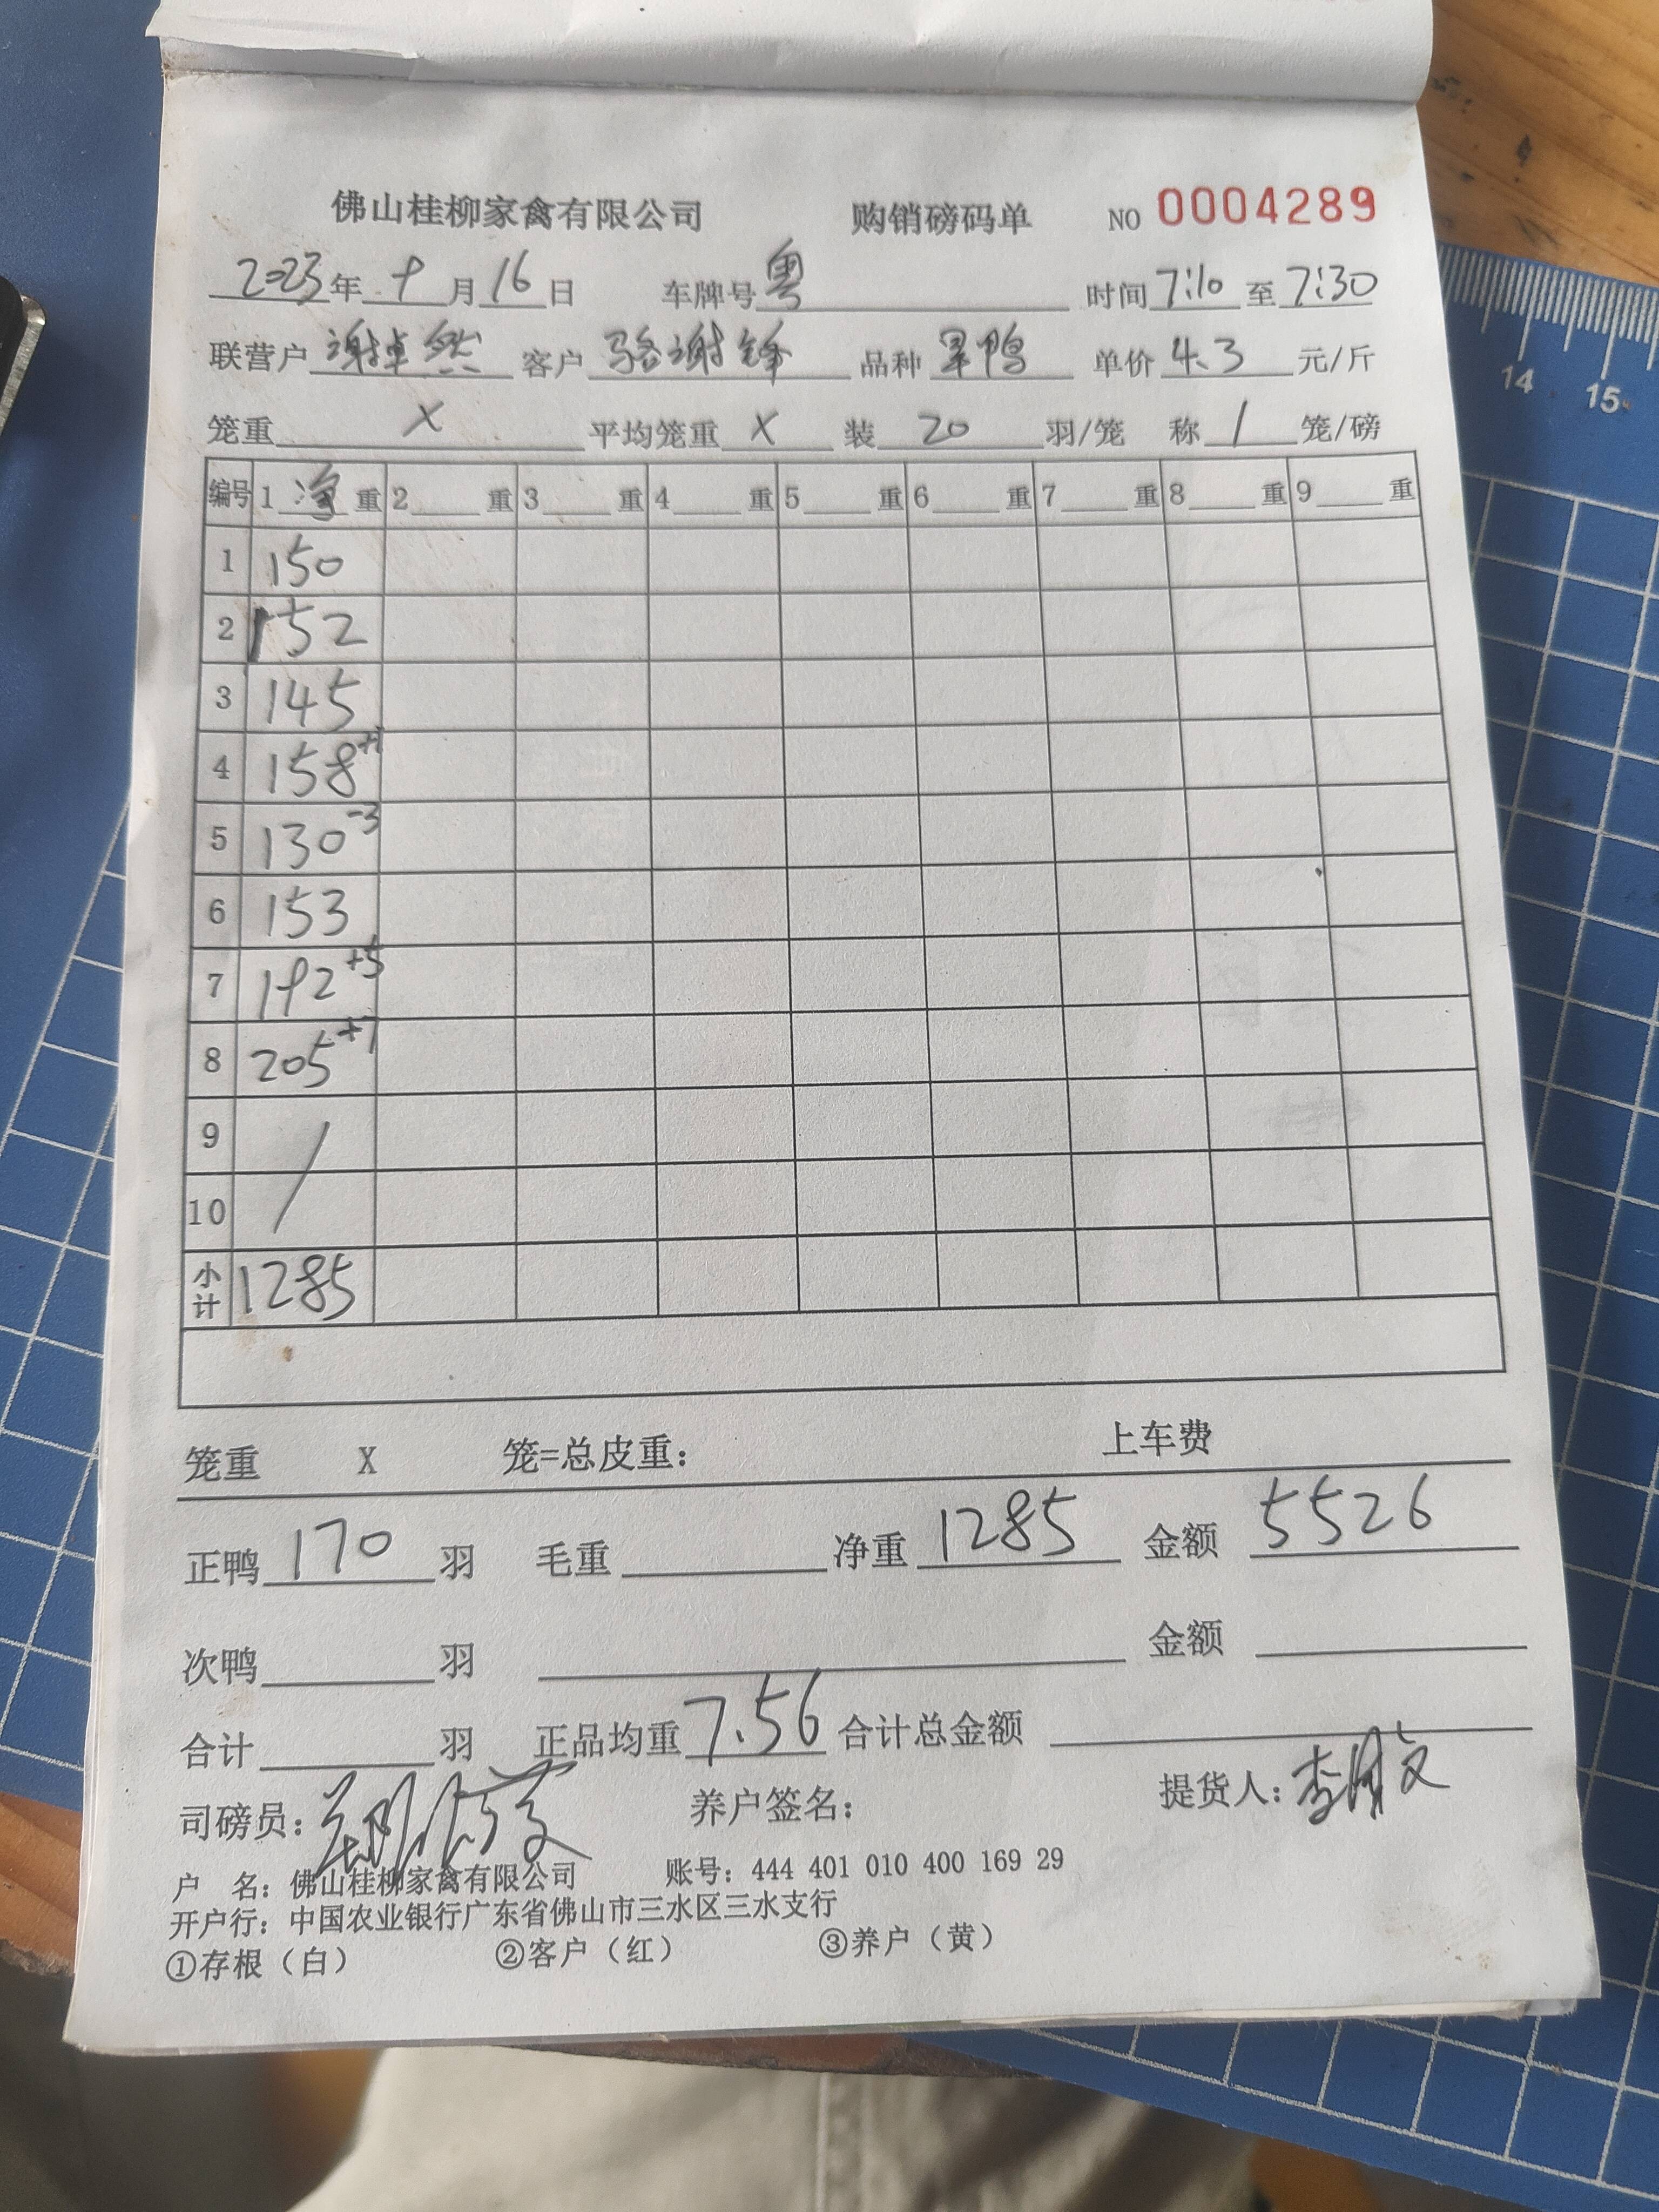 佛山桂柳家禽有限公司 购销磅码单 NO 0004289
2023年 9月16日 车牌号粤 时间7:10至7:30
联营户谢卓然 客户骆谢锋 品种旱鸭 单价4.3元/斤
笼重 X 平均笼重 X 装 20 羽/笼 称 1 笼/磅
编号 1 净 重 2 重 3 重 4 重 5 重 6 重 7 重 8 重 9 重
1 150
2 152
3 145
4 158+1
5 130-3
6 153
7 192+5
8 205+7
9 /
10
小计 1285
笼重 X 笼=总皮重: 上车费
正鸭 170 羽 毛重 净重 1285 金额 5526
次鸭 羽 金额
合计 羽 正品均重 7.56 合计总金额
司磅员: 养户签名: 提货人:
户 名: 佛山桂柳家禽有限公司 账号: 444 401 010 400 169 29
开户行: 中国农业银行广东省佛山市三水区三水支行
①存根（白） ②客户（红） ③养户（黄）
14 15